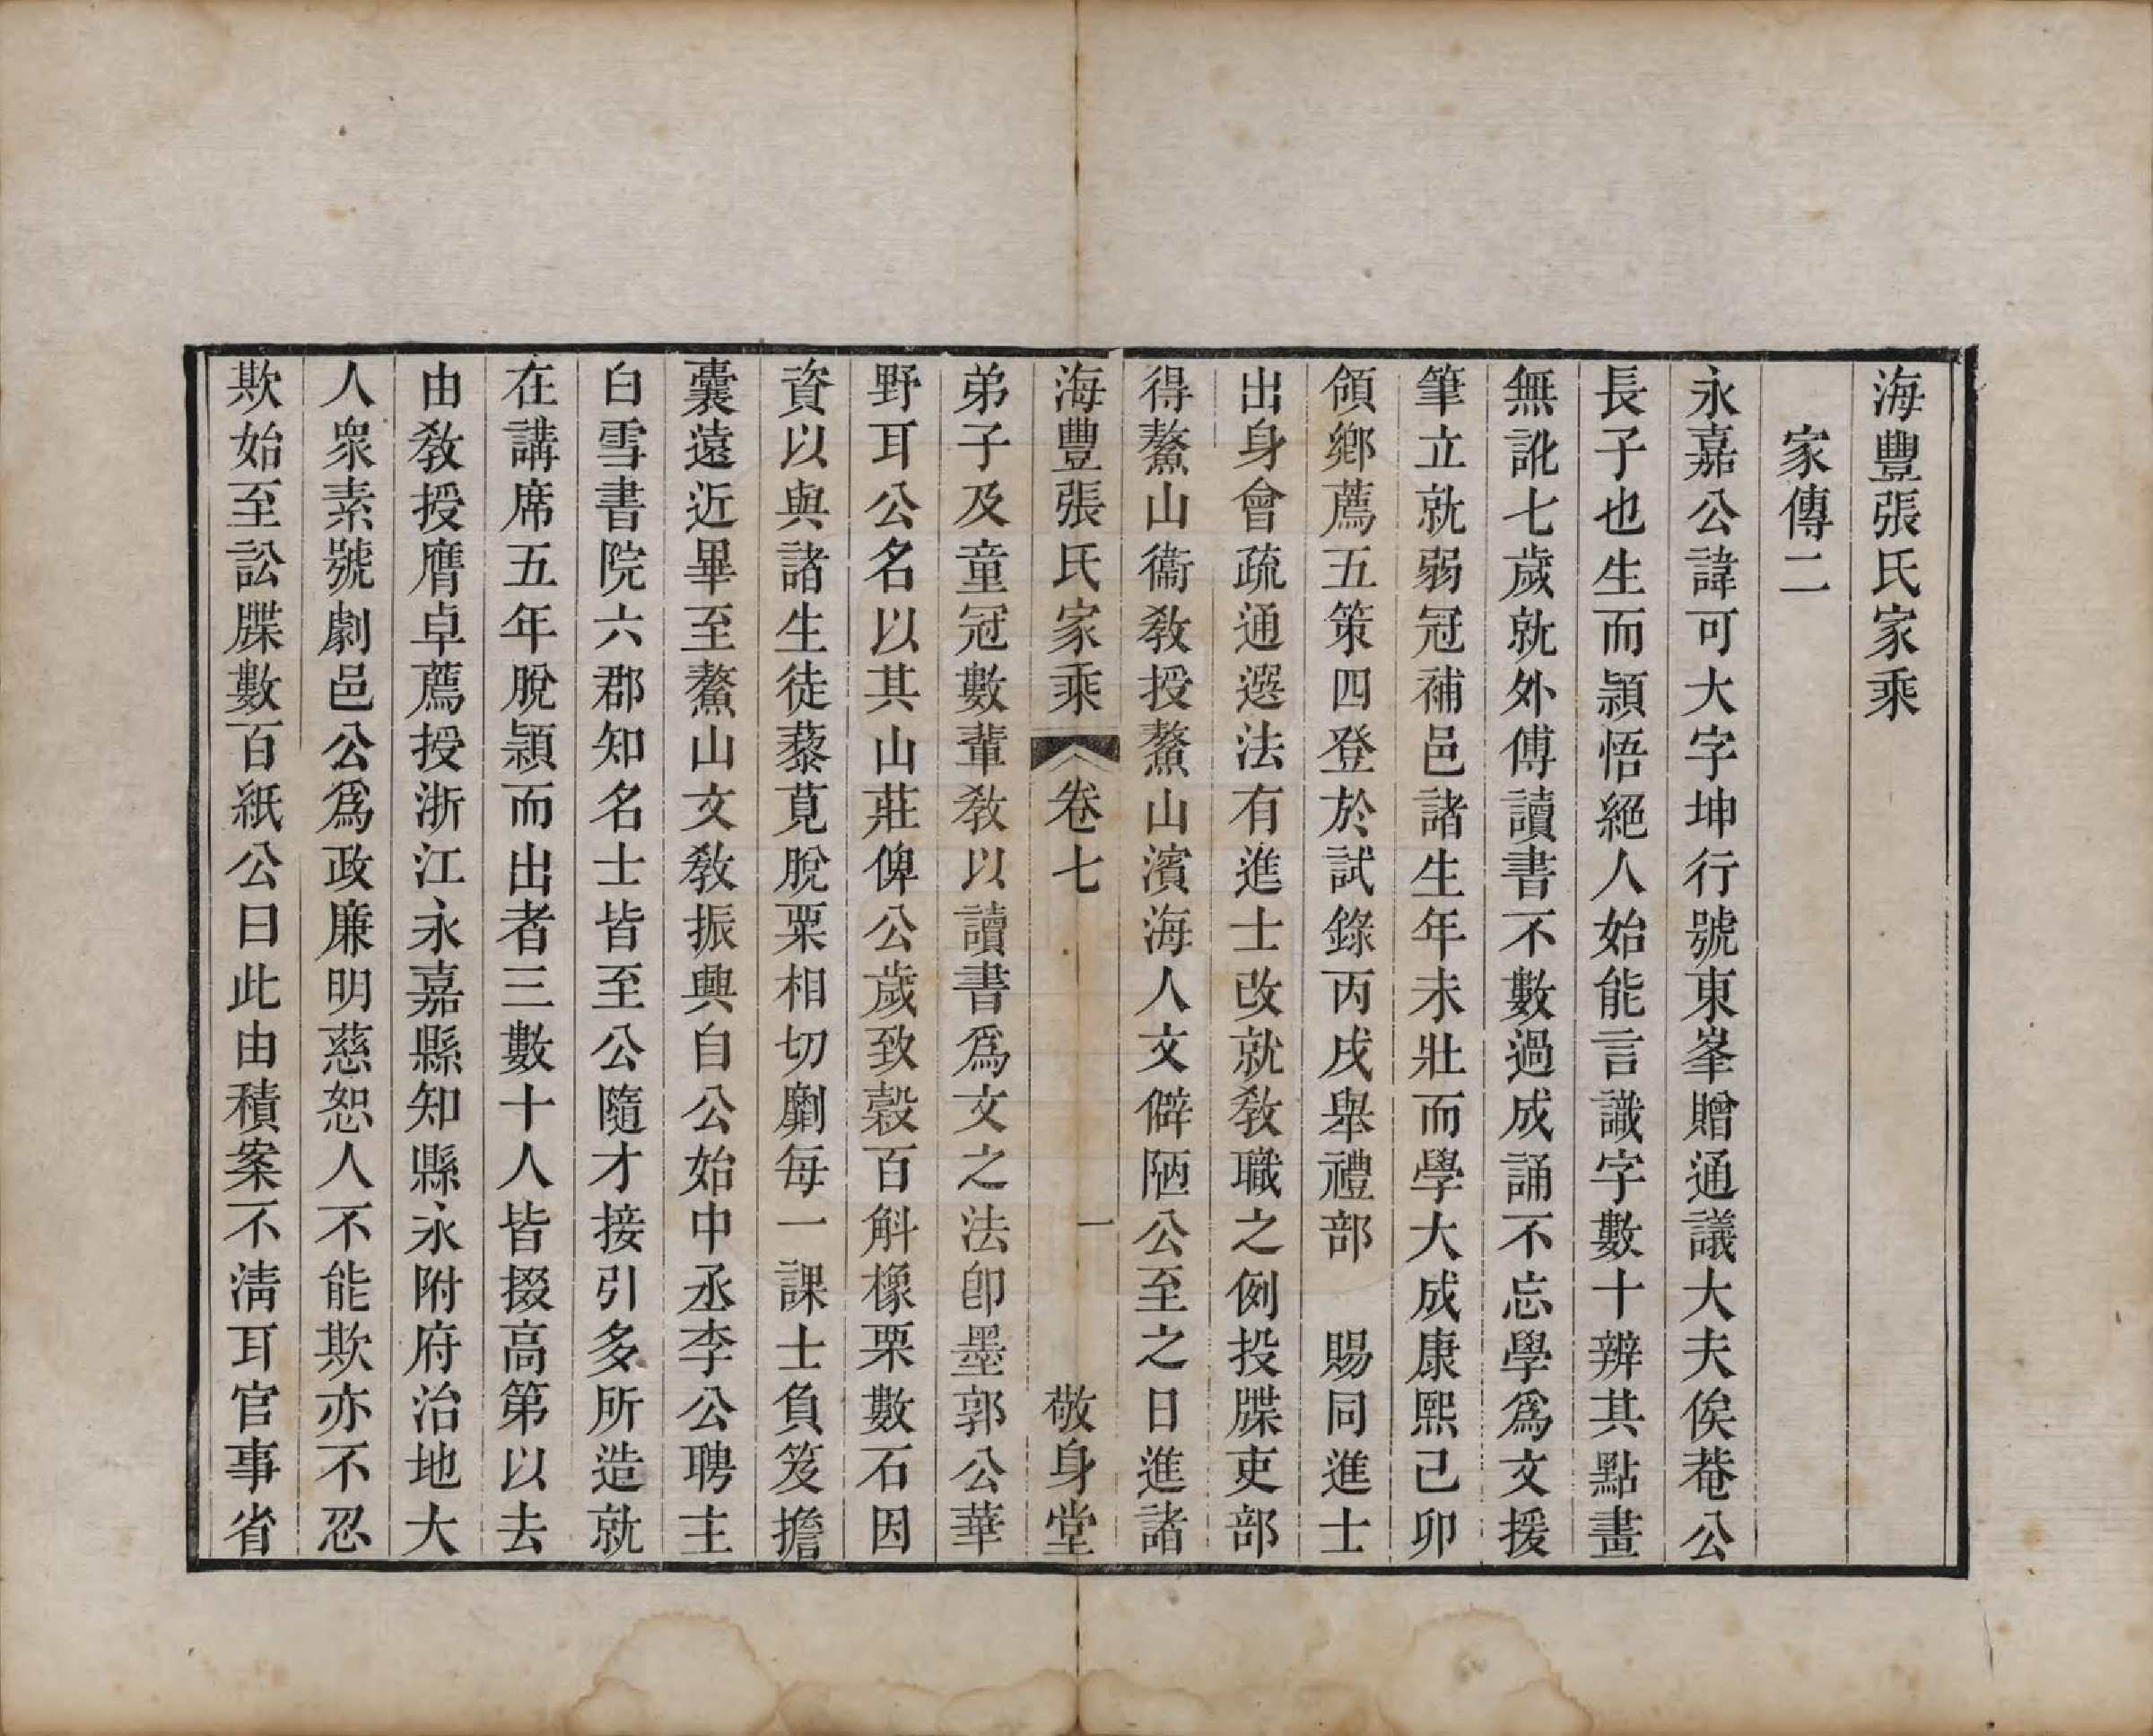 海豐張氏家乘
家傳二
永嘉公諱可大字坤行號東峯贈通議大夫俟菴公
長子也生而穎悟絕人始能言識字數十辨其點畫
無訛七歲就外傅讀書不數過成誦不忘學爲文援
筆立就弱冠補邑諸生年未壯而學大成康熙己卯
領鄉薦五策四登於試錄丙戌舉禮部　賜同進士
出身會疏通選法有進士改就敎職之例投牒吏部
得鰲山衞敎授鰲山濱海人文僻陋公至之日進諸
海豐張氏家乘　卷七　一　敬身堂
弟子及童冠數輩敎以讀書爲文之法卽墨郭公華
野耳公名以其山莊俾公歲致穀百斛橡栗數石因
資以與諸生徒藜莧脫粟相切劘每一課士負笈擔
囊遠近畢至鰲山文敎振興自公始中丞李公聘主
白雪書院六郡知名士皆至公隨才接引多所造就
在講席五年脫穎而出者三數十人皆掇高第以去
由敎授膺卓薦授浙江永嘉縣知縣永附府治地大
人衆素號劇邑公爲政廉明慈恕人不能欺亦不忍
欺始至訟牒數百紙公曰此由積案不淸耳官事省